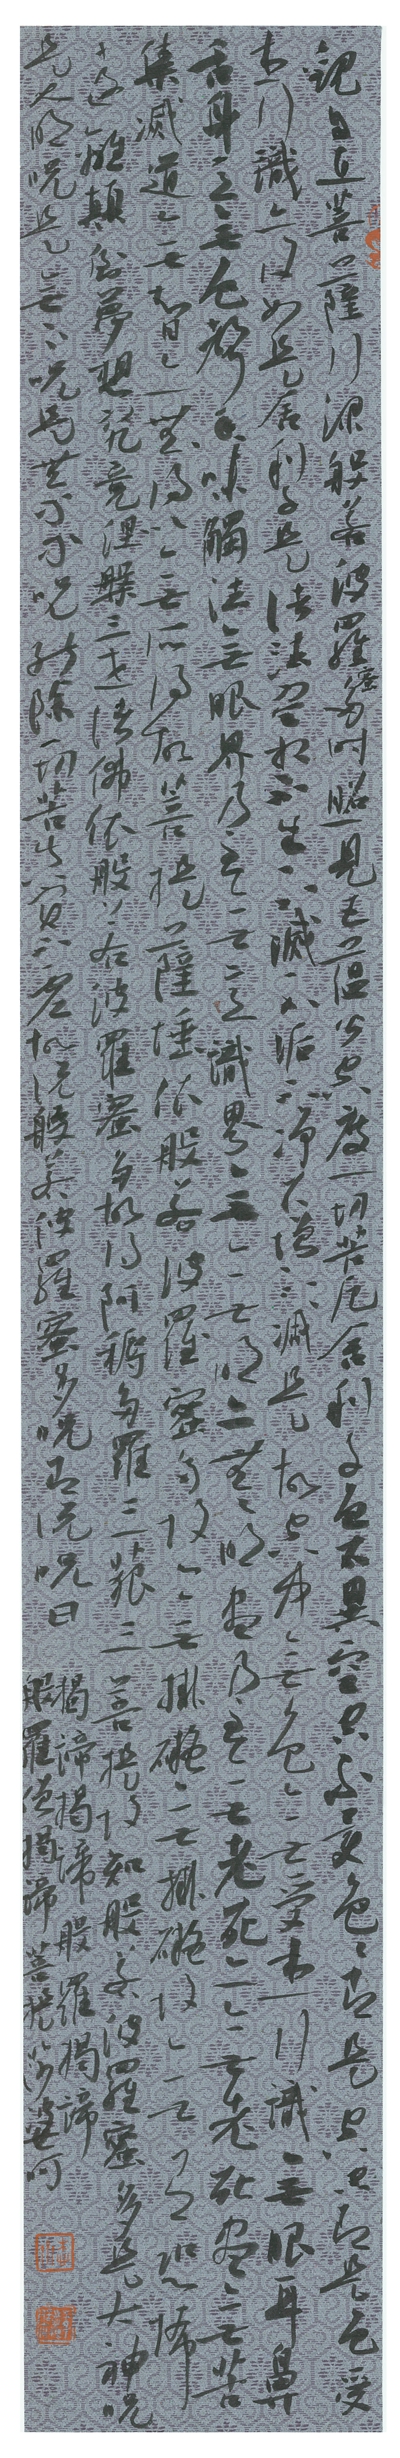 觀自在菩薩行深般若波羅蜜多時照見五蘊皆空度一切苦厄舍利子色不異空空不異色色即是空空即是色受
想行識亦復如是舍利子是諸法空相不生不滅不垢不淨不增不減是故空中無色無受想行識無眼耳鼻
舌身意無色聲香味觸法無眼界乃至無意識界無無明亦無無明盡乃至無老死亦無老死盡無苦
集滅道無智亦無得以無所得故菩提薩埵依般若波羅蜜多故心無掛礙無掛礙故無有恐怖
遠離顛倒夢想究竟涅槃三世諸佛依般若波羅蜜多故得阿耨多羅三藐三菩提故知般若波羅蜜多是大神呪
是大明呪是無上呪是無等等呪能除一切苦真實不虛故說般若波羅蜜多呪即說呪曰
揭諦揭諦般羅揭諦
般羅僧揭諦菩提莎婆呵